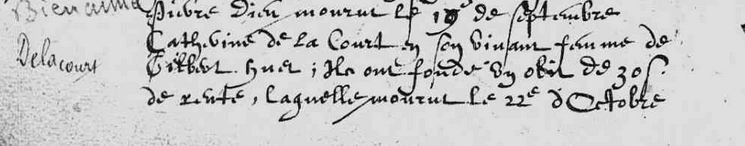 Bienaimé
Pierre Dieu mourut le 19 de septembre
Delacourt
Catherine de la Court en son vivant femme de
Gilbert huet ; Ilz ont fondé un obit de 30 s.
de rente, laquelle mourut le 22e d'Octobre